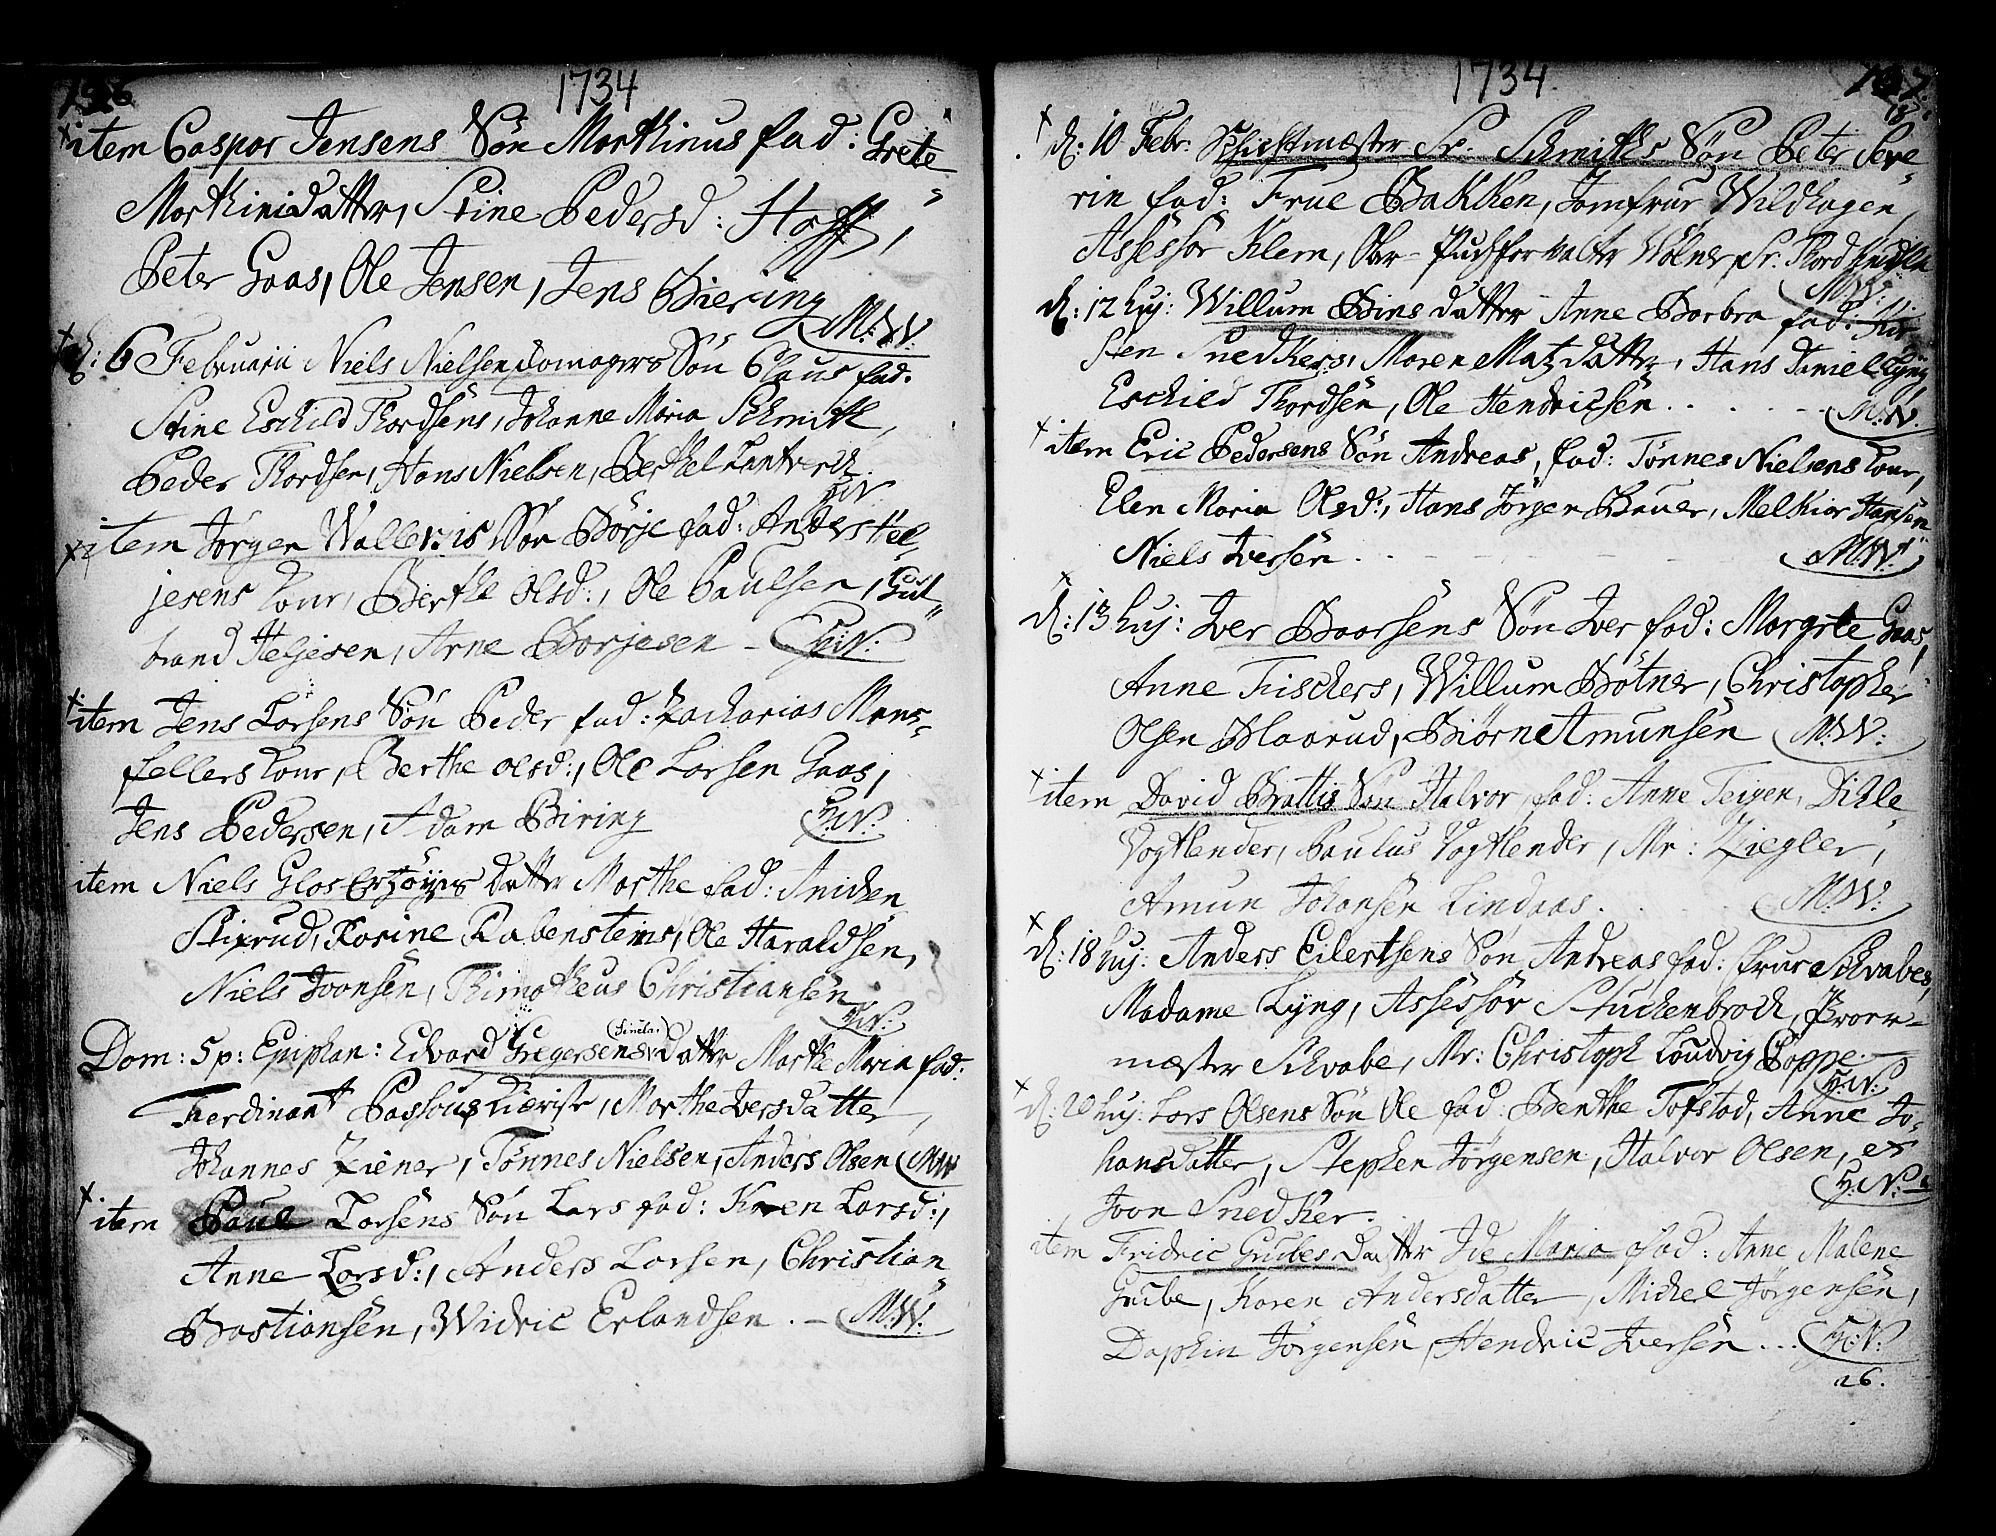 1734
item Caspar Jensens Søn Morthinus fad: Grete
Mortinidatter, Stine Pedersd: Hoff,
Peter Gaas, Ole Jensen, Jens Biering
M:W:
d: 6 Februarii Niels Nielsen Søn Claus fad.
Stine Eschild Thordsens, Johanne Maria Schmith,
Peder Thordsen, Hans Nielsen, Berthel
item Jørgen Søn Børje fad: Anders Hel-
jesens Kone, Berthe Olsd:, Ole Paulsen, Gul-
brand Heljesen, Arne Borjesen - H:N:
item Jens Larsens Søn Peder fad: Zacharias Mans-
fellers Kone, Berthe Olsd:, Ole Larsen Gaas,
Jens Pedersen, Adam Biring H:N:
item Niels datter Marthe fad: Anichen
Stixrud, Rosine Rabensteins, Ole Haraldsen,
Niels Joonsen, Thimotheus Christiansen
H:N:
Dom: 5 p: Epiphan: Edvard Gregersens datter Marthe Maria fad:
Ferdinant Marthe Iversdatter,
Johannes Ziener, Tønnes Nielsen, Anders Olsen M:W:
item Paul Larsens Søn Lars fad: Karen Larsd:,
Anne Larsd:, Anders Larsen, Christian
Bastiansen, Widric Erlandsen . - M:W:
1734.
d: 10 Febr: Schichtmæster Sr. Schmiths Søn Peter Seve-
rin fad: Frue Bakken, Jomfrue Wildhagen,
Assessor Klem, Ober-Puchforvalter Wølner, Sr. Thord
M:W:
d: 12 huj: Willum Bins datter Anne Barbra fad: Kir-
sten Snedkers, Maren Matzdatter, Hans Daniel Lyng,
Eschild Thordsen, Ole Hendrichsen . . . . - M:W:
item Eric Pedersens Søn Andreas, fad: Tønnes Nielsens Kone,
Elen Maria Olsd:, Hans Jørgen Bauer, Melkior Hansen
Niels Iversen . . M:W:
d: 13 huj: Iver Baarsens Søn Iver fad: Margrete Gaas,
Anne Fischers, Willum Bøtner, Christopher
Olsen Blaarud, Biørn Amunsen M:W:
item David Brattis Søn Halvor, fad: Anne Teigen, Dikle
Vogtlender, Paulus Vogtlender, Mr: Ziegler,
Amun Johansen Lindaas. M:W:
d: 18 huj: Anders Eilertsens Søn Andreas fad: Frue Schvabes,
Madame Lyng, Assessor Stuckenbrock, Prover-
mæster Schvabe, Mr: Christoph Loudvig Poppe.
H:N:
d: 20 huj: Lars Olsens Søn Ole fad: Benthe Tofstad, Anne Jo-
hansdatter, Stephen Jørgensen, Halvor Olsen, et
Joon Snedker. H:N:
item Fridric Grubes datter Ide Maria fad: Anne Malene
Grube, Karen Andersdatter, Michel Jørgensen,
Daphin Jørgensen, Hendric Iversen . . . H:N:
26.